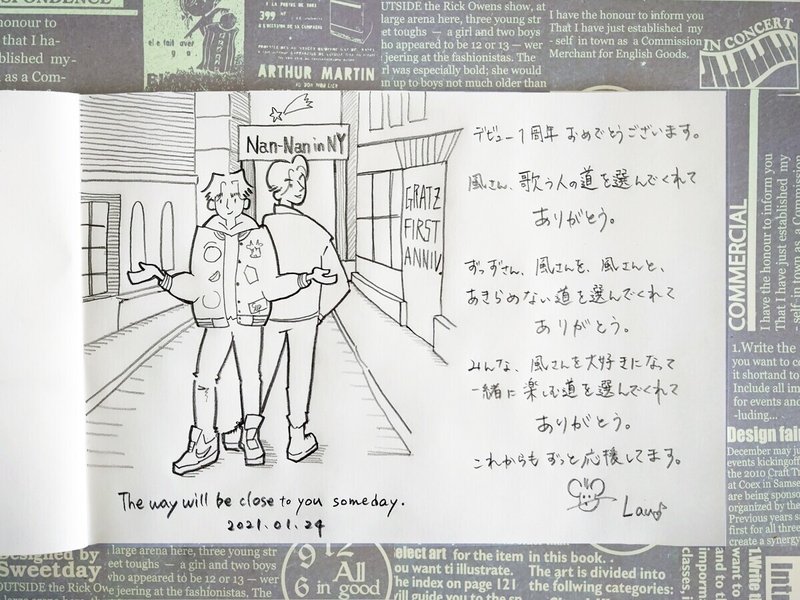 SPONDENCE
honour to
that I ha-
blished my-
as a Com-
399
ARTHUR MARTIN
UTSIDE the Rick Owens show, at
large arena here, three young str
eet toughs — a girl and two boys
who appeared to be 12 or 13 — wer
e jeering at the fashionistas. The
girl was especially bold; she would
an up to boys not much older than
I have the honour to inform you
That I have just established my
- self in town as a Commission
Merchant for English Goods.
IN CONCERT
Nan-Nan in NY
GRATZ
FIRST
ANNIV.
The way will be close to you someday.
2021.01.24
デビュー1周年 おめでとうございます。
風さん、歌う人の道を選んでくれて
ありがとう。
ずっずさん、風さんを、風さんと、
あきらめない道を選んでくれて
ありがとう。
みんな、風さんを大好きになって
一緒に楽しむ道を選んでくれて
ありがとう。
これからもずっと応援してます。
COMMERCIAL
I have the honour to inform you
That I have just established my
1.Write the
you want to co
it shortand to
Include all im
for events and
-luding...
Design fair
December may ju
events kickingoff
the 2010 Craft T
at Coex in Samse
are being sponso
organized by the
Previous years s
first for all three
create a synergy
Designed by
Sweetday
OUTSIDE the Rick Ow
large arena here, three young str
eet toughs — a girl and two boys
who appeared to be 12 or 13 — wer
e jeering at the fashionistas. The
9 12
6
All
in good
elect art for the item in this book.
ou want ti illustrate.
The index on page 121
will guide you to the
The art is divided into
the follwing categories:
1.Write the
Inti